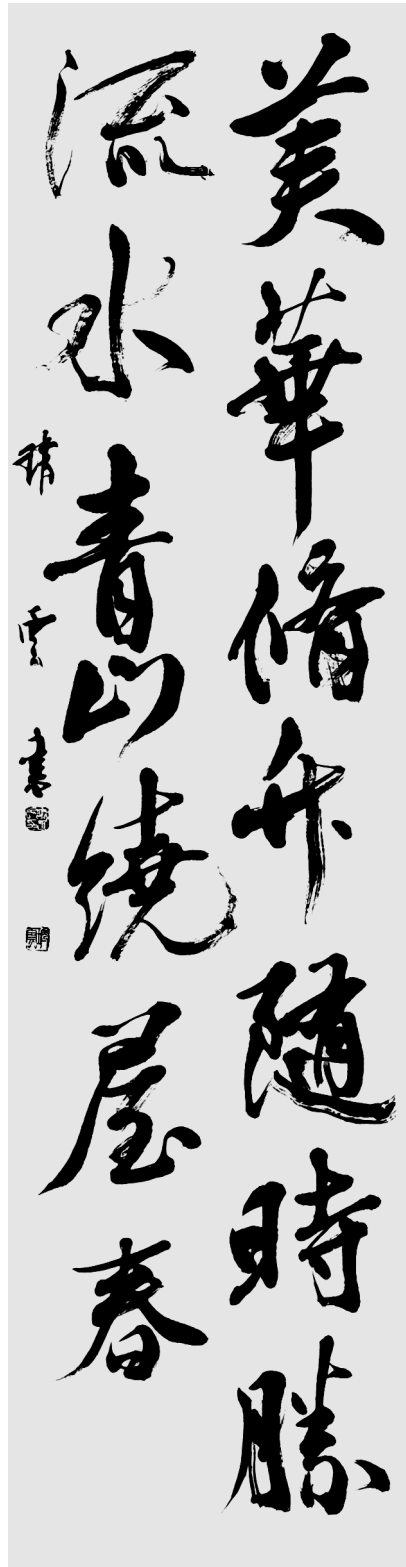 美華脩竹隨時勝
流水青山繞屋春
雲書